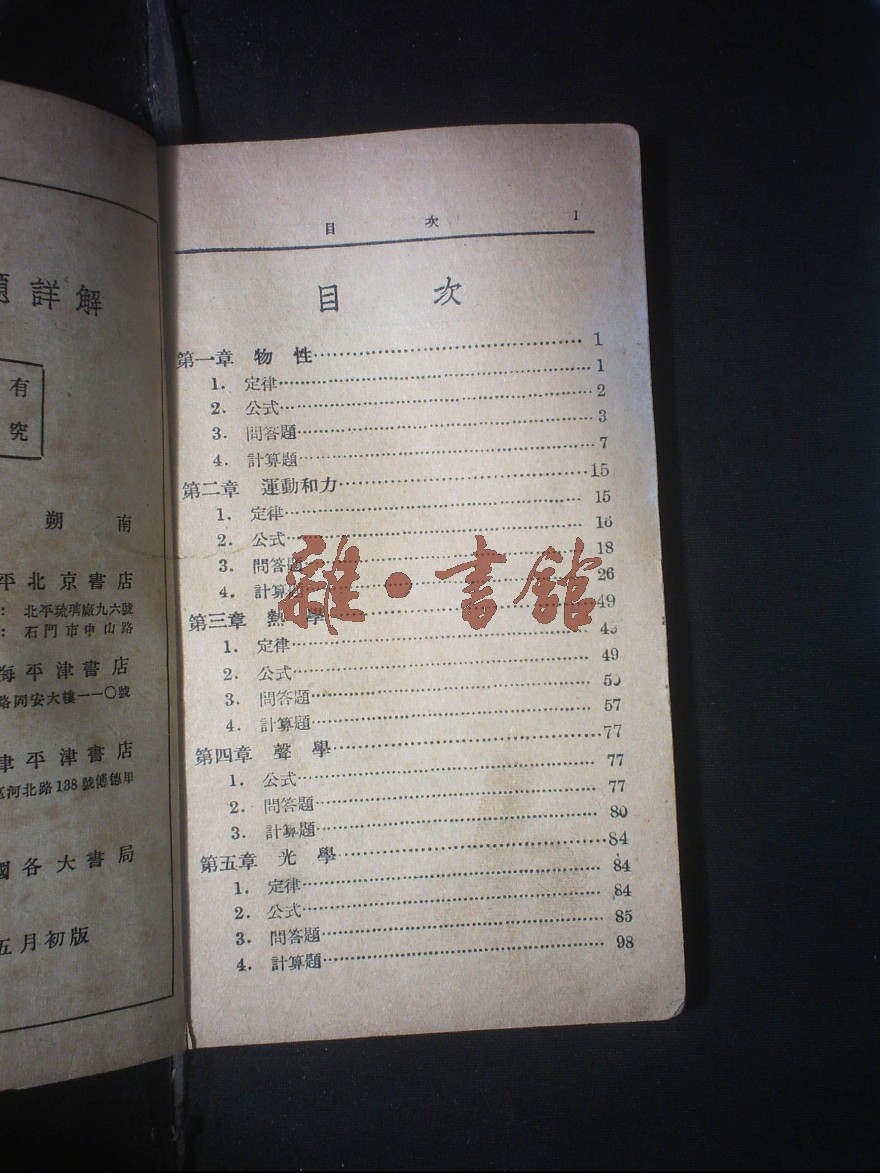 題詳解
有
究
朔 南
平北京書店
： 北平琉璃廠九六號
： 石門市中山路
海平津書店
路同安大樓一一〇號
津平津書店
河北路138號傅德甲
國各大書局
五月初版
目 次 1
目 次
第一章 物 性 1
1. 定律 1
2. 公式 2
3. 問答題 3
4. 計算題 7
第二章 運動和力 15
1. 定律 15
2. 公式 16
3. 問答題 18
4. 計算題 26
第三章 熱 學 49
1. 定律 49
2. 公式 49
3. 問答題 50
4. 計算題 57
第四章 聲 學 77
1. 公式 77
2. 問答題 77
3. 計算題 80
第五章 光 學 84
1. 定律 84
2. 公式 84
3. 問答題 85
4. 計算題 98
雜·書館